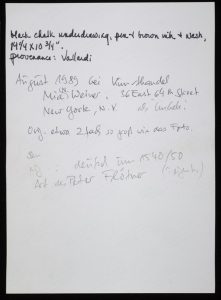 black chalk underdrawing, pen + brown ink + wash,
14 1/4 x 10 3/4".
provenance: Vallardi
August 1989 bei Kunsthandel
Mia Weiner, 36 East 64th Street
New York, N.Y.
Org. etwa 2 fach so groß wie das Foto.
: deutsch um 1540/50
Art des Peter Flötner